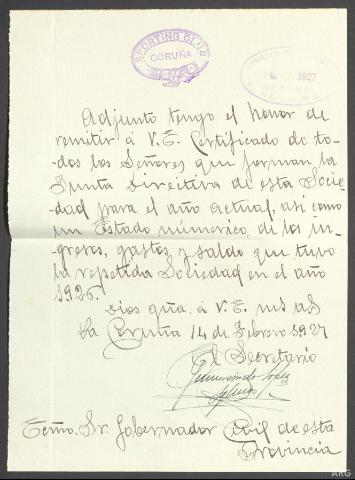 SPORTING CLUB
CORUÑA
1927
Adjunto tengo el honor de
remitir á V.E. Certificado de to-
dos los Señores que forman la
Junta Directiva de esta Socie-
dad para el año actual, asi como
un Estado númerico, de los in-
gresos, gastos y saldo que tuvo
la repetida Sociedad en el año
1926.
Dios gûa. á V.E. ms as
La Coruña 14 de Febrero 1927
El Secretario
Gumersindo López
Ecmo. Sr. Gobernador Civil de esta
Provincia
ARG